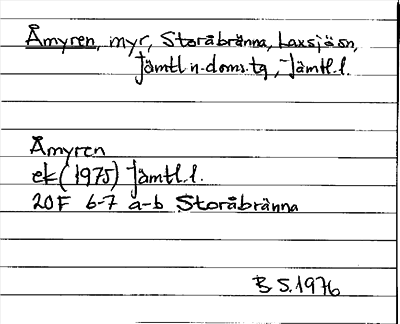 Åmyren, myr, Storåbränna, Laxsjö sn,
Jämtl n. doms. tg, Jämtl. l.
Åmyren
ek (1975) Jämtl. l.
20F 6-7 a-b Storåbränna
B S. 1976